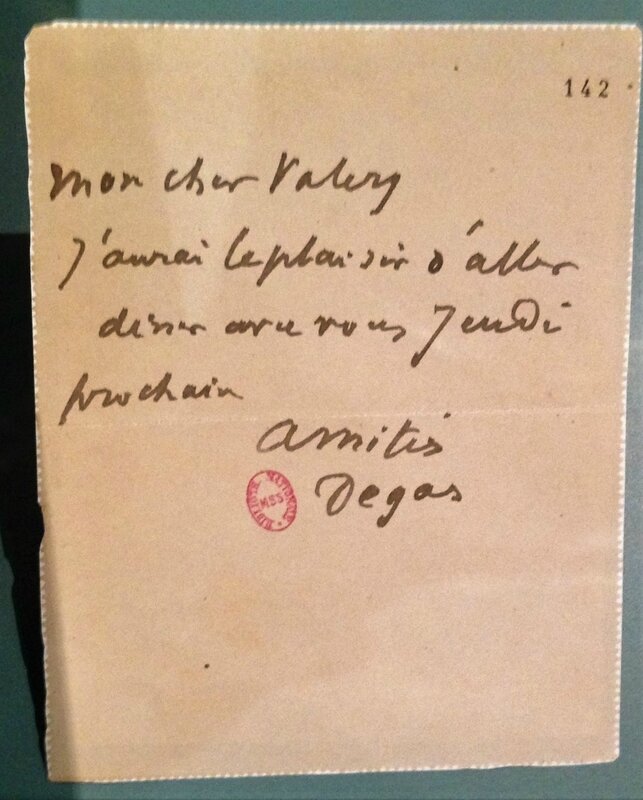 142
mon cher Valery
J'aurai le plaisir d'aller
diner avec vous Jeudi
prochain
amitiés
Degas
BIBLIOTH. NATIONALE
MSS